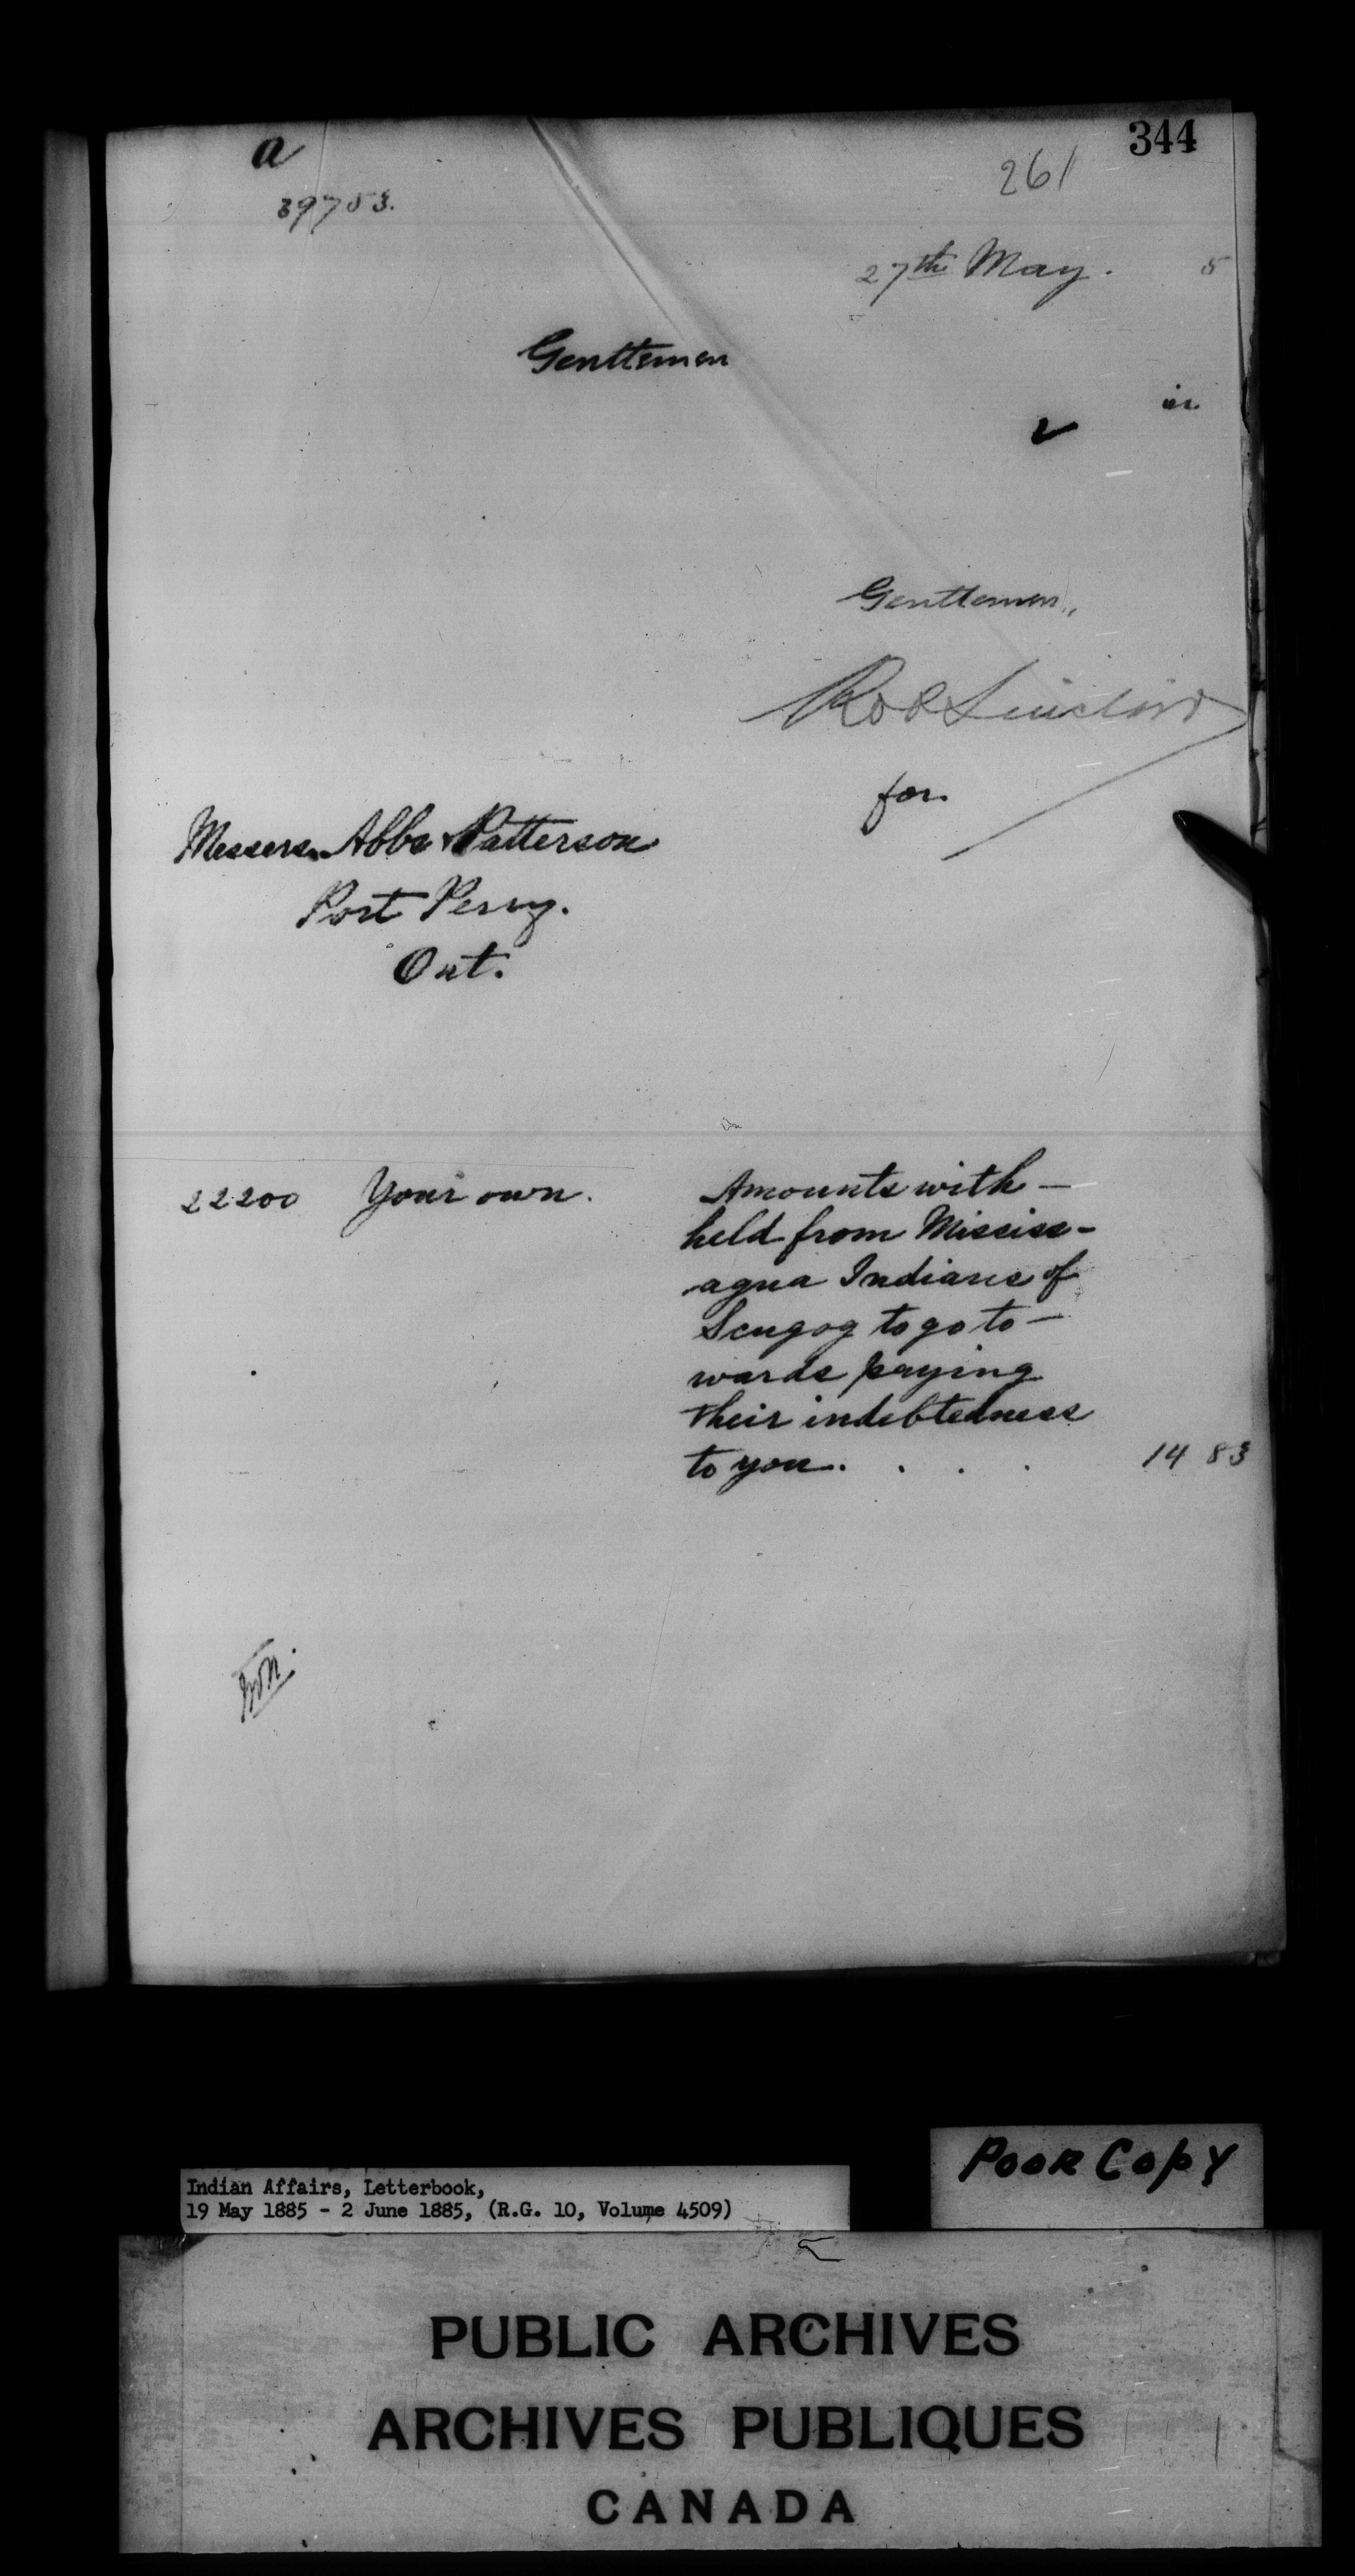 a
344
261
39753.
27th May. 5
Gentlemen
in
Gentlemen,
Rob Sinclair
for.
Messrs. Abbs & Patterson
Port Perry.
Ont.
22200 Your own. Amounts with-
held from Mississ-
agua Indians of
Scugog to go to-
wards paying
their indebtedness
to you. . . . 14 83
Poor Copy
Indian Affairs, Letterbook,
19 May 1885 - 2 June 1885, (R.G. 10, Volume 4509)
PUBLIC ARCHIVES
ARCHIVES PUBLIQUES
CANADA